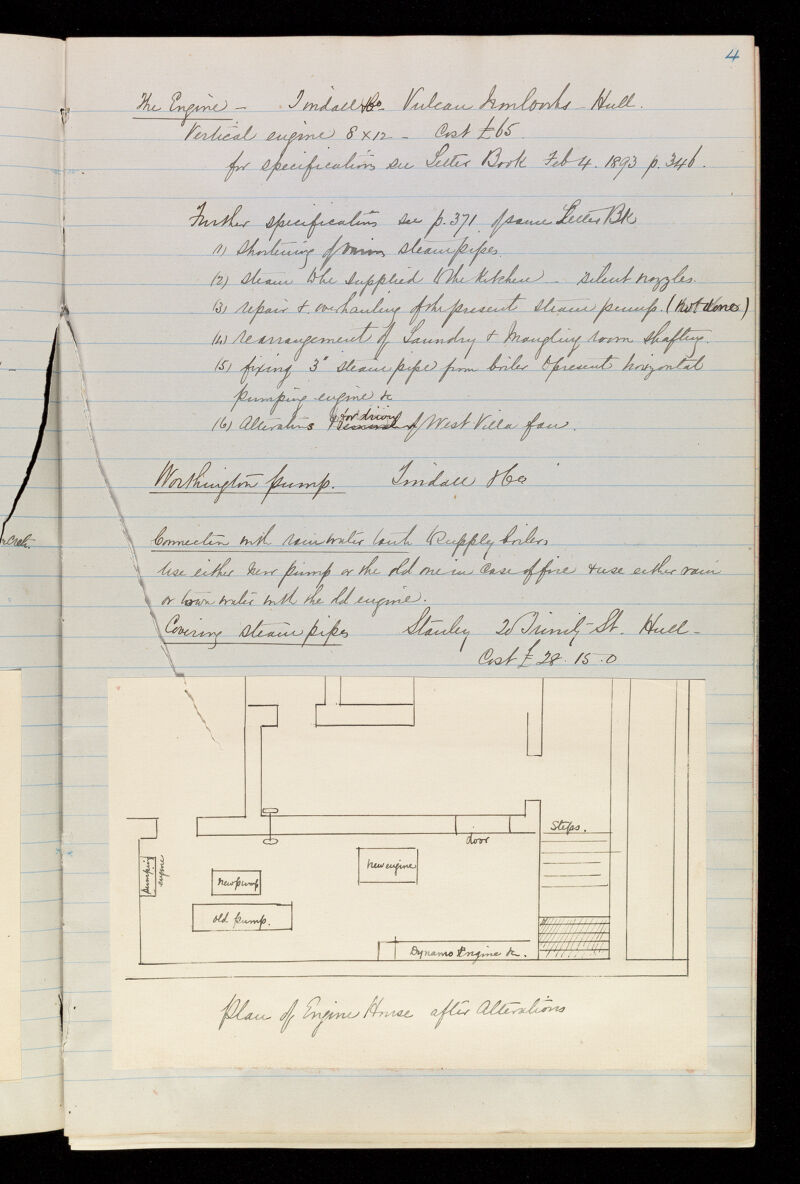 4
The Engine – Tindall & Co – Vulcan Ironworks – Hull.
Vertical engine 8 x 12 – Cost £65.
for specifications see Letter Book Feb 4. 1893 p. 346.
Further specifications see p. 371 of same Letter Bk
(1) Shortening of main steam pipes.
(2) Steam to be supplied to the kitchen – silent nozzles.
(3) repair & overhauling of the present steam pump. (Not done)
(4) rearrangement of Laundry & Mangling room shafting.
(5) fixing 3" steam pipe from boiler to present horizontal
pumping engine &c
for driving
(6) Alterations & removal of West Villa fan.
Worthington pump. Tindall & Co
Connection with rain water tank to supply boilers
Use either new pump or the old one in case of fire & use either rain
or town water with the old engine.
Covering steam pipes Stanley 20 Trinity St. Hull –
Cost £28. 15. 0
ncrete.
Steps.
door
pumping engine
new pump
new engine
old pump.
Dynamo Engine &c.
Plan of Engine House after Alterations